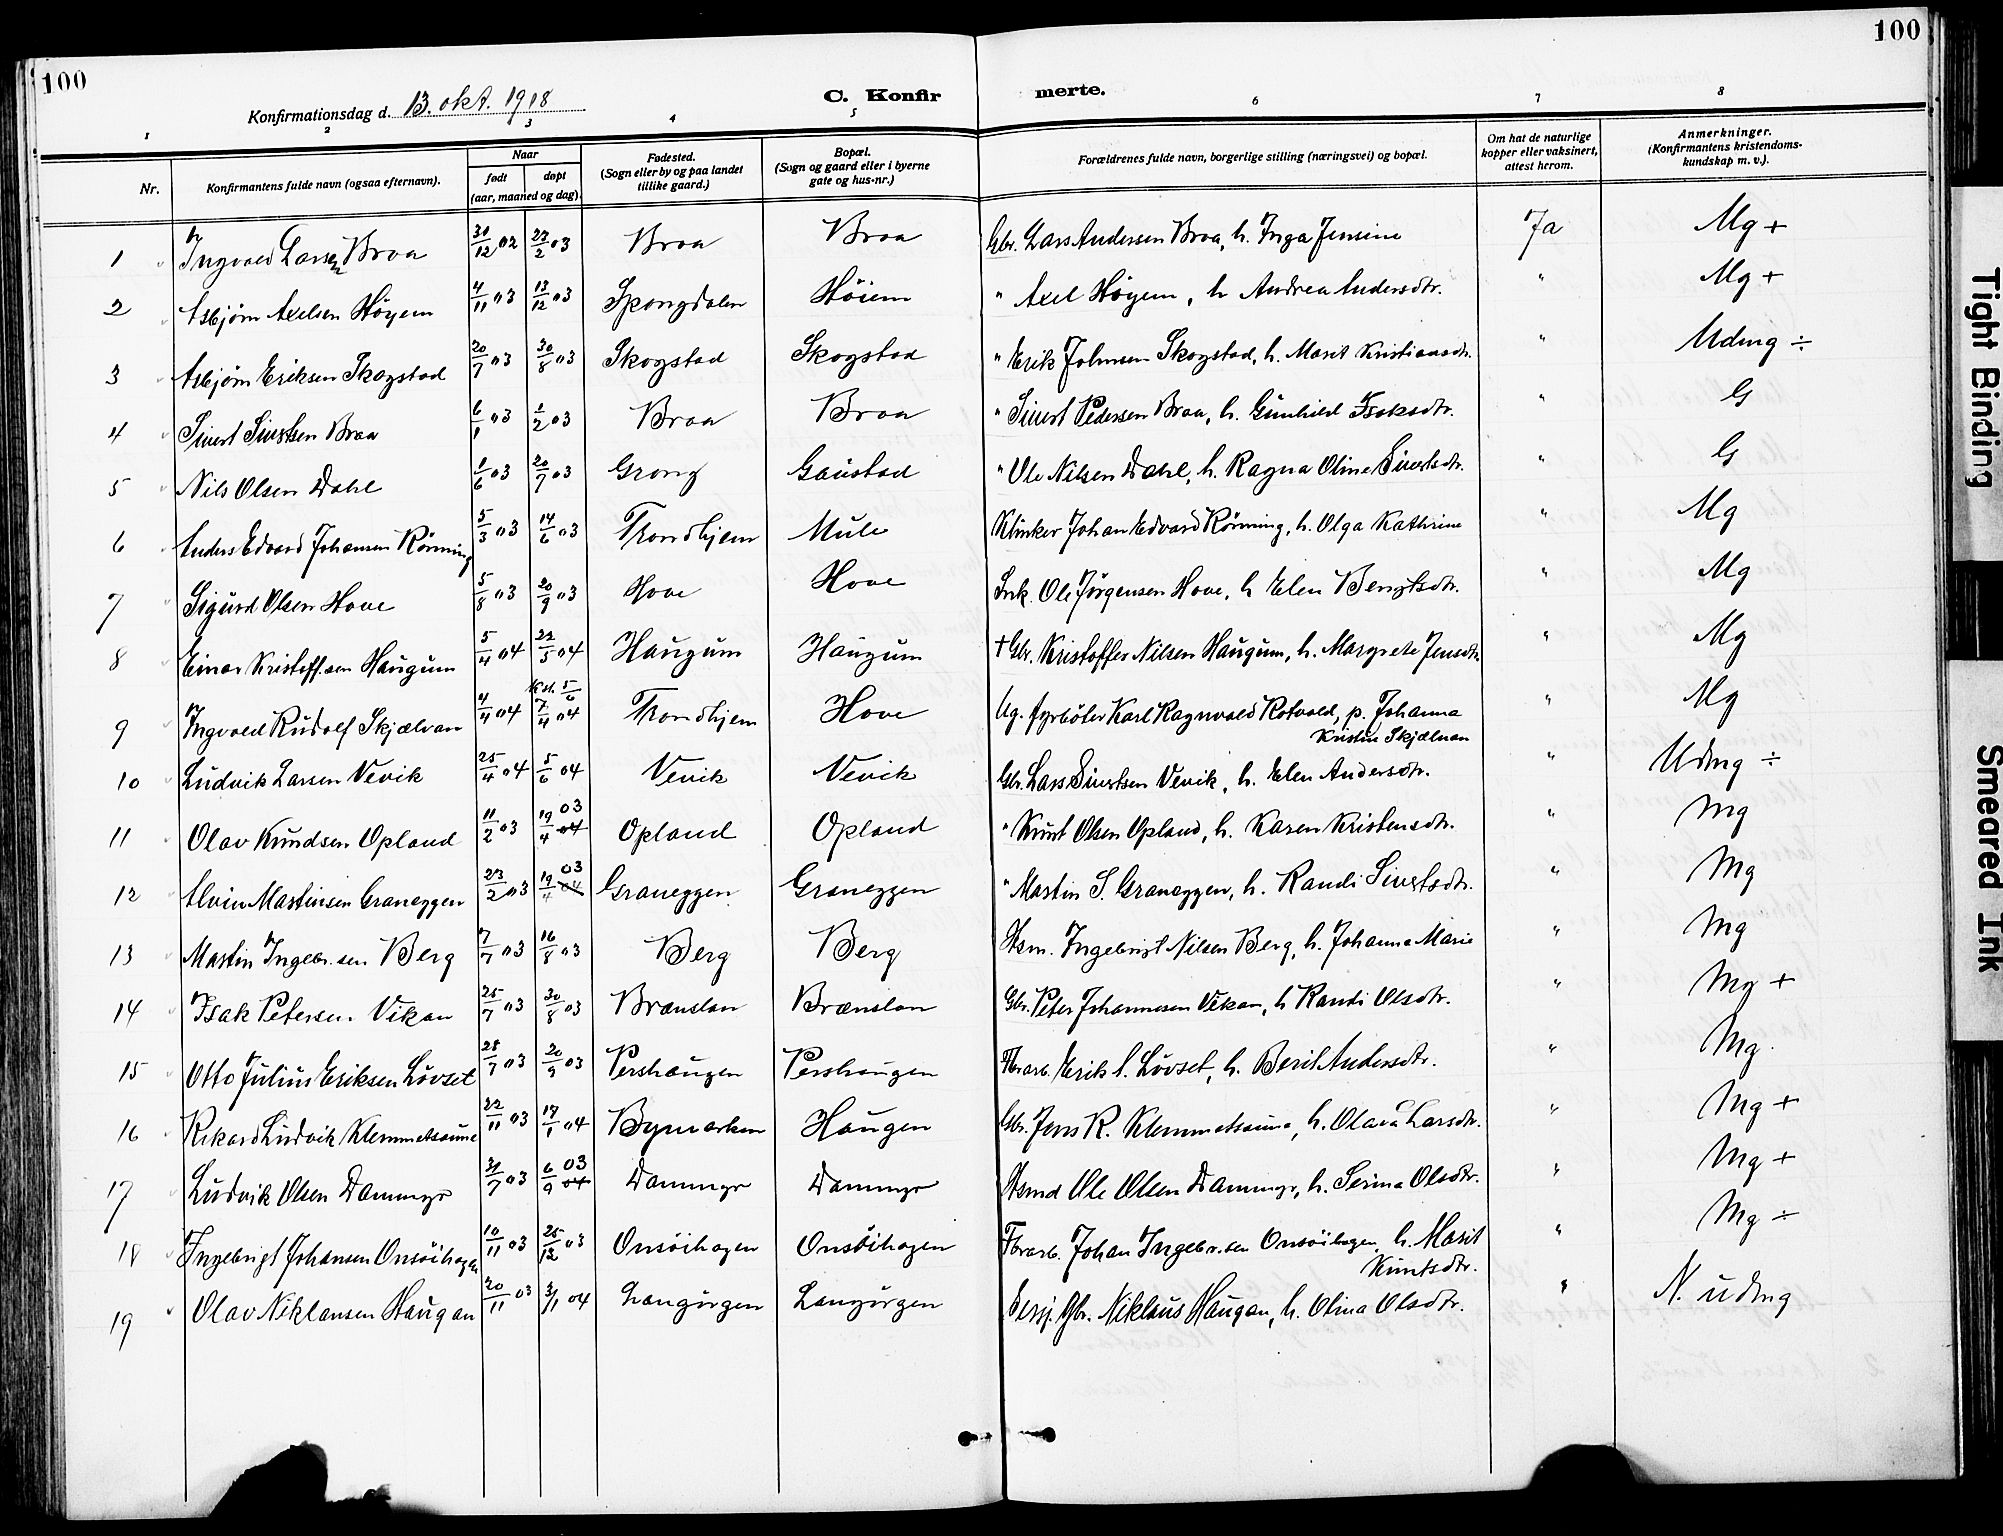 100
100
Konfirmationsdag d. 13. okt. 1918
C. Konfirmerte.
1 2 3 4 5 6 7 8
Nr. | Konfirmantens fulde navn (ogsaa efternavn). | Naar født døpt (aar, maaned og dag). | Fødested. (Sogn eller by og paa landet tillike gaard.) | Bopæl. (Sogn og gaard eller i byerne gate og hus-nr.) | Forældrenes fulde navn, borgerlige stilling (næringsvei) og bopæl. | Om hat de naturlige kopper eller vaksinert, attest herom. | Anmerkninger. (Konfirmantens kristendomskundskap m. v.).
1 Ingvald Larsen Braa 30/12 02 22/2 03 Braa Braa Gbr. Lars Andersen Braa, h. Inga Jensine Ja Mg +
2 Asbjørn Axelsen Høyem 4/11 03 13/12 03 Spongdalen Höiem " Axel Höyem, h Andrea Andersdtr. " Mg +
3 Asbjørn Eriksen Skogstad 20/7 03 30/8 03 Skogstad Skogstad " Erik Johnsen Skogstad, h. Marit Kristiansdtr. " Udmg ÷
4 Sivert Sivertsen Braa 6/1 03 1/2 03 Braa Braa " Sivert Pedersen Braa, h. Gunhild Isaksdtr. " G
5 Nils Olsen Dahl 1/6 03 20/7 03 Grong Gaustad " Ole Nilsen Dahl, h. Ragna Oline Sivertsdtr. " G
6 Anders Edvard Johansen Rönning 5/3 03 14/6 03 Trondhjem Mule Klinker Johan Edvard Rönning, h. Olga Kathrine " Mg
7 Sigurd Olsen Hove 5/8 03 20/9 03 Hove Hove Snk. Ole Jörgensen Hove, h Elen Bengtsdtr. " Mg
8 Einar Kristoff.sen Haugum 5/4 04 22/5 04 Haugum Haugum + Gbr. Kristoffer Nilsen Haugum, h. Margrete Jensdtr. " Mg
9 Ingvald Rudolf Skjælvan 4/4 04 kst. 5/6 7/4 04 Trondhjem Hove Ug. fyrböter Karl Ragnvald Rotvold, p. Johanna Kristin Skjælvan " Mg
10 Ludvik Larsen Vevik 25/4 04 5/6 04 Vevik Vevik Gbr. Lars Sivertsen Vevik, h. Elen Andersdtr. " Udmg ÷
11 Olav Knudsen Opland 11/2 03 19/4 04 03 Opland Opland " Knut Olsen Opland, h. Karen Kristensdtr. " Mg
12 Alvin Mastinsen Graneggen 23/2 03 19/4 04 03 Graneggen Graneggen " Mastin S. Graneggen, h. Randi Sivertsdtr. " Mg
13 Mastin Ingebr.sen Berg 7/7 03 16/8 03 Berg Berg Hsm. Ingebrigt Nilsen Berg, h. Johanna Marie " Mg
14 Isak Petersen Vikan 25/7 03 30/8 03 Brænslan Brænslan Gbr. Peter Johannesen Vikan, h Randi Olsdtr. " Mg +
15 Otto Julius Eriksen Lövset 28/7 03 20/9 03 Pershaugen Pershaugen Fbrarb. Erik L. Lövset, h. Berit Andersdtr. " Mg.
16 Rikard Ludvik Klemmetsaune 22/11 03 17/1 04 Bymarken Haugen Gbr. Jens R. Klemmetsaune, h. Olava Larsdtr. " Mg +
17 Ludvik Olsen Dammyr 31/7 03 6/9 04 03 Dammyr Dammyr Hsmd Ole Olsen Dammyr, h. Serina Olsdtr. " Mg +
18 Ingebrigt Johansen Onsöihagen 10/11 03 25/12 03 Onsöihagen Onsöihagen Fbrarb. Johan Ingebr.sen Onsöihagen, h. Marit Knutsdtr. " Mg ÷
19 Olav Niklausen Haugan 20/11 03 3/1 04 Langörgen Langörgen Gbr. Niklaus Haugan, h. Olina Olsdtr. " N. udmg
Tight Binding
Smeared Ink